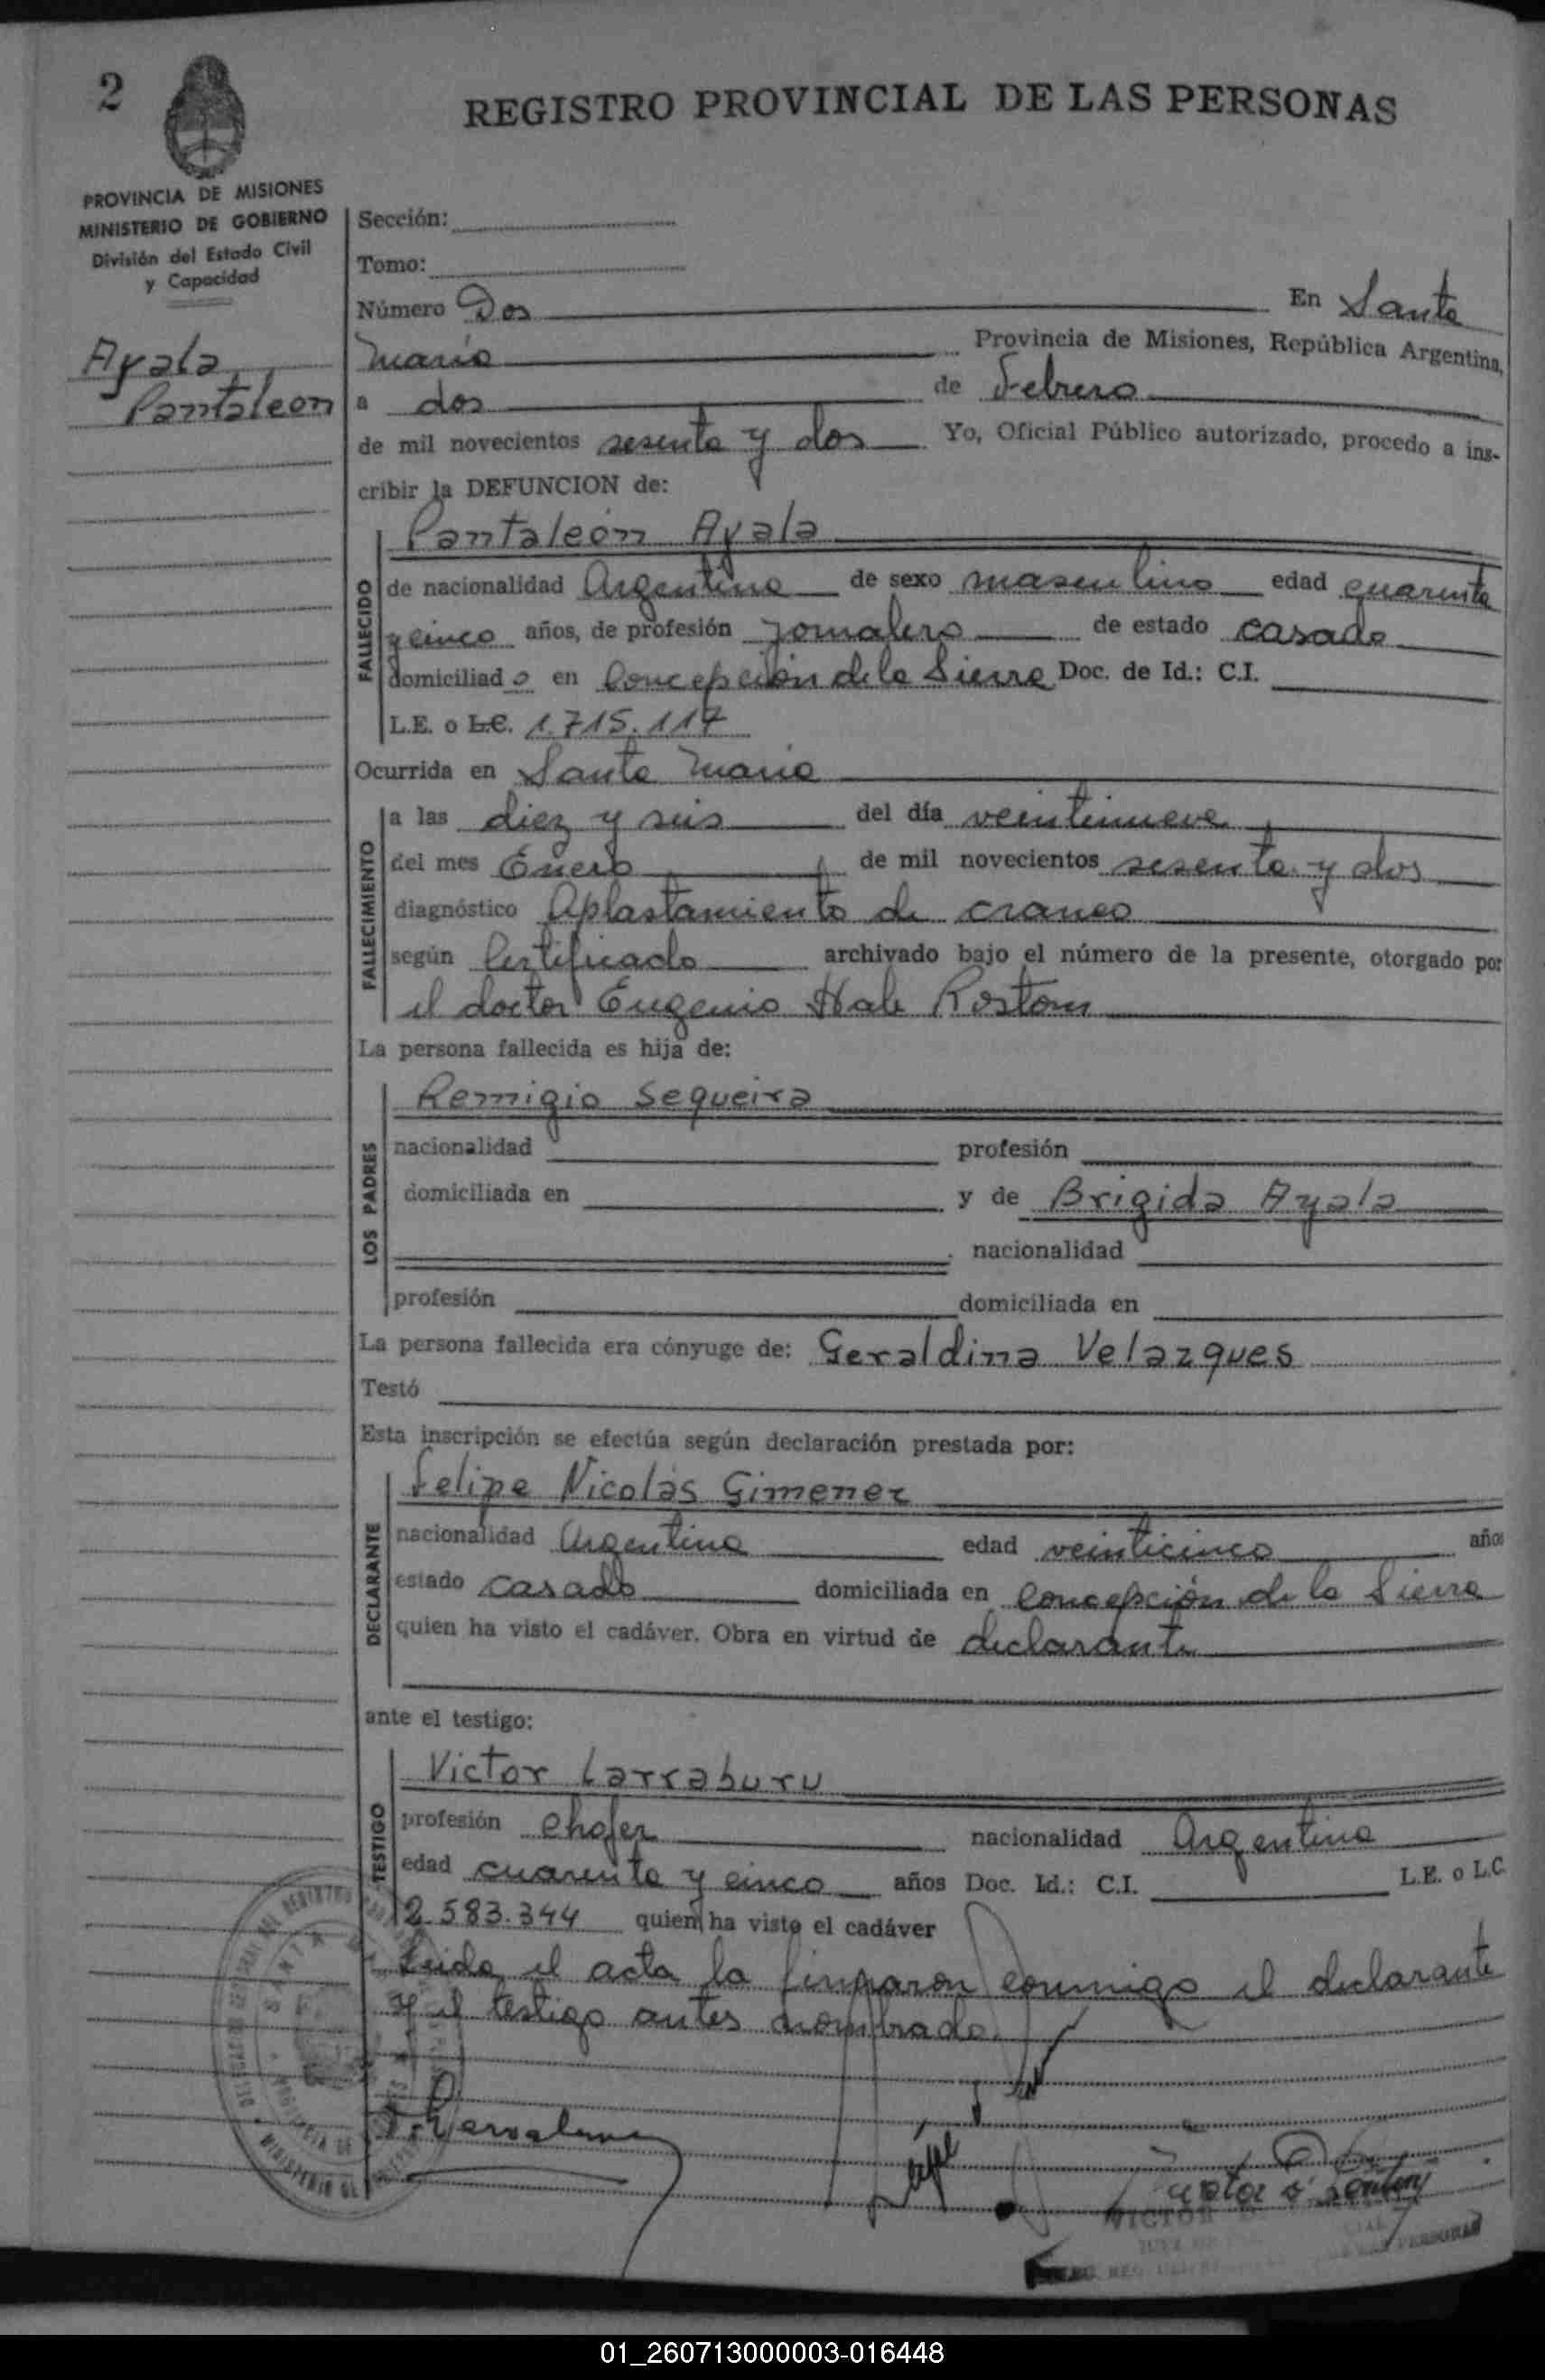 2
REGISTRO PROVINCIAL DE LAS PERSONAS
PROVINCIA DE MISIONES
MINISTERIO DE GOBIERNO
División del Estado Civil
y Capacidad
Ayala
Pantaleon
Sección:
Tomo:
Número Dos En Santa
María Provincia de Misiones, República Argentina,
a dos de Febrero
de mil novecientos sesenta y dos Yo, Oficial Público autorizado, procedo a ins-
cribir la DEFUNCION de:
FALLECIDO
Pantaleón Ayala
de nacionalidad Argentina de sexo masculino edad cuarenta
y cinco años, de profesión Jornalero de estado casado
domiciliado en Concepción de la Sierra Doc. de Id.: C.I.
L.E. o L.C. 1.715.117
Ocurrida en Santa María
FALLECIMIENTO
a las diez y seis del día veintinueve
del mes Enero de mil novecientos sesenta y dos
diagnóstico Aplastamiento de craneo
según Certificado archivado bajo el número de la presente, otorgado por
el doctor Eugenio Hale Rostom
La persona fallecida es hija de:
LOS PADRES
Remigio Sequeira
nacionalidad profesión
domiciliada en y de Brigida Ayala
nacionalidad
profesión domiciliada en
La persona fallecida era cónyuge de: Geraldina Velazques
Testó
Esta inscripción se efectúa según declaración prestada por:
DECLARANTE
Felipe Nicolás Gimenez
nacionalidad Argentina edad veinticinco años
estado casado domiciliada en Concepción de la Sierra
quien ha visto el cadáver. Obra en virtud de declarante
ante el testigo:
TESTIGO
Victor Larraburu
profesión chofer nacionalidad Argentina
edad cuarenta y cinco años Doc. Id.: C.I. L.E. o L.C.
2.583.344 quien ha visto el cadáver
Leida el acta la firmaron conmigo el declarante
y el testigo antes nombrado.
VICTOR
01_260713000003-016448